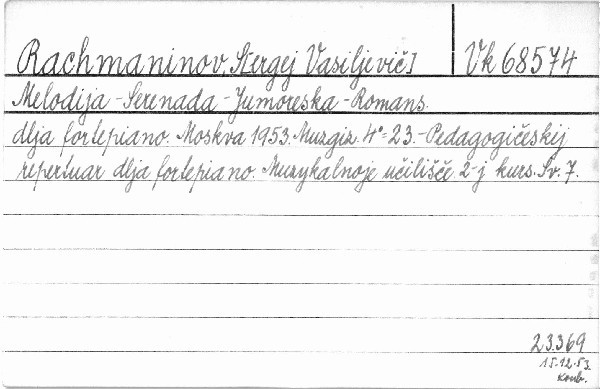 Rachmaninov, S[ergej Vasiljevič] Vk 68574
Melodija - Serenada - Jumoreska - Romans.
dlja fortepiano. Moskva 1953. Muzgiz. 4° = 23. - Pedagogičeskij
repertuar dlja fortepiano. Muzykalnoje učilišče. 2-j kurs. Sv. 7.
23369
15.12.53.